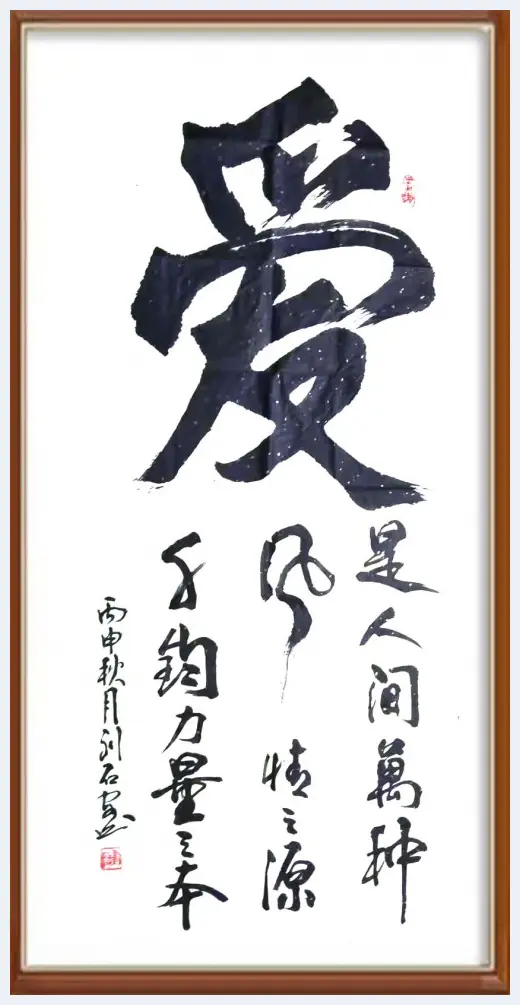 爱
是人间萬种
风情之源
千鈞力量之本
丙申秋月刘石